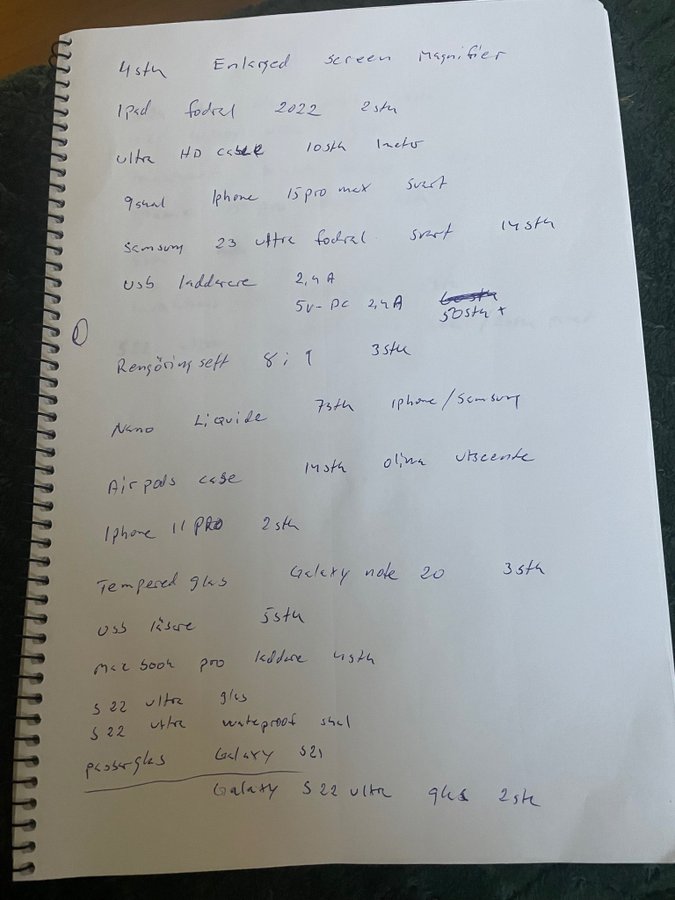 4sth Enlarged screen Magnifier
Ipad fodral 2022 2sth
ultra HD case 10sth
9 skal Iphone 15 pro max svart
Samsung 23 ultra fodral svart 14sth
USB laddarere 2,4A
5V-DC 2,4A
50sth +
1
Rengöring sett 8 i 1 3sth
Nano Liquide Iphone / Samsung
Air pods case 14sth olina utseende
Iphone 11 PRO 2sth
Tempered glas Galaxy note 20 3sth
USB läsare 5sth
Mac book pro laddare 4sth
S22 ultra glas
S22 ultra wateproof skal
passerglas Galaxy S21
Galaxy S22 ultra glas 2sth